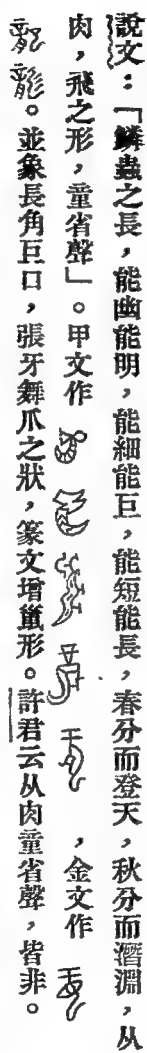 說文：「鱗蟲之長，能幽能明，能細能巨，能短能長，春分而登天，秋分而潛淵，从
肉，飛之形，童省聲」。甲文作，金文作
。並象長角巨口，張牙舞爪之狀，篆文增鬣形。許君云从肉童省聲，皆非。